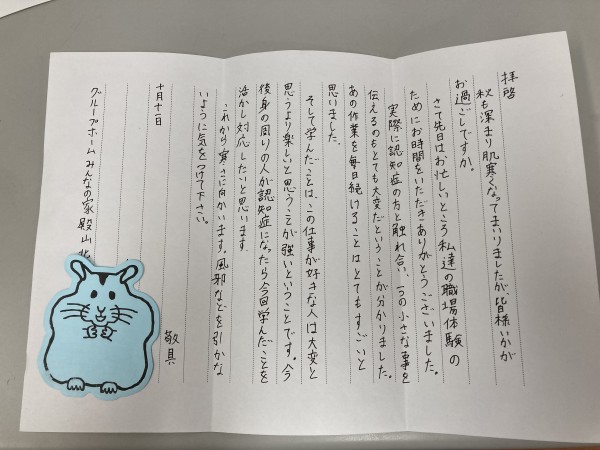 拝啓
秋も深まり肌寒くなってまいりましたが、皆様いかが
お過ごしですか。
さて先日はお忙しいところ私達の職場体験の
ためにお時間をいただきありがとうございました。
実際に認知症の方と触れ合い、一つの小さな事を
伝えるのもとても大変だということが分かりました。
あの作業を毎日続けることはとてもすごいと
思いました。
そして学んだことは、この仕事が好きな人は大変と
思うより楽しいと思うことが強いということです。今
後身の周りの人が認知症になったら今回学んだことを
活かし対応したいと思います
これから寒さに向かいます。風邪などを引かな
いように気をつけて下さい。
敬具
十月十一日
グループホームみんなの家 殿山